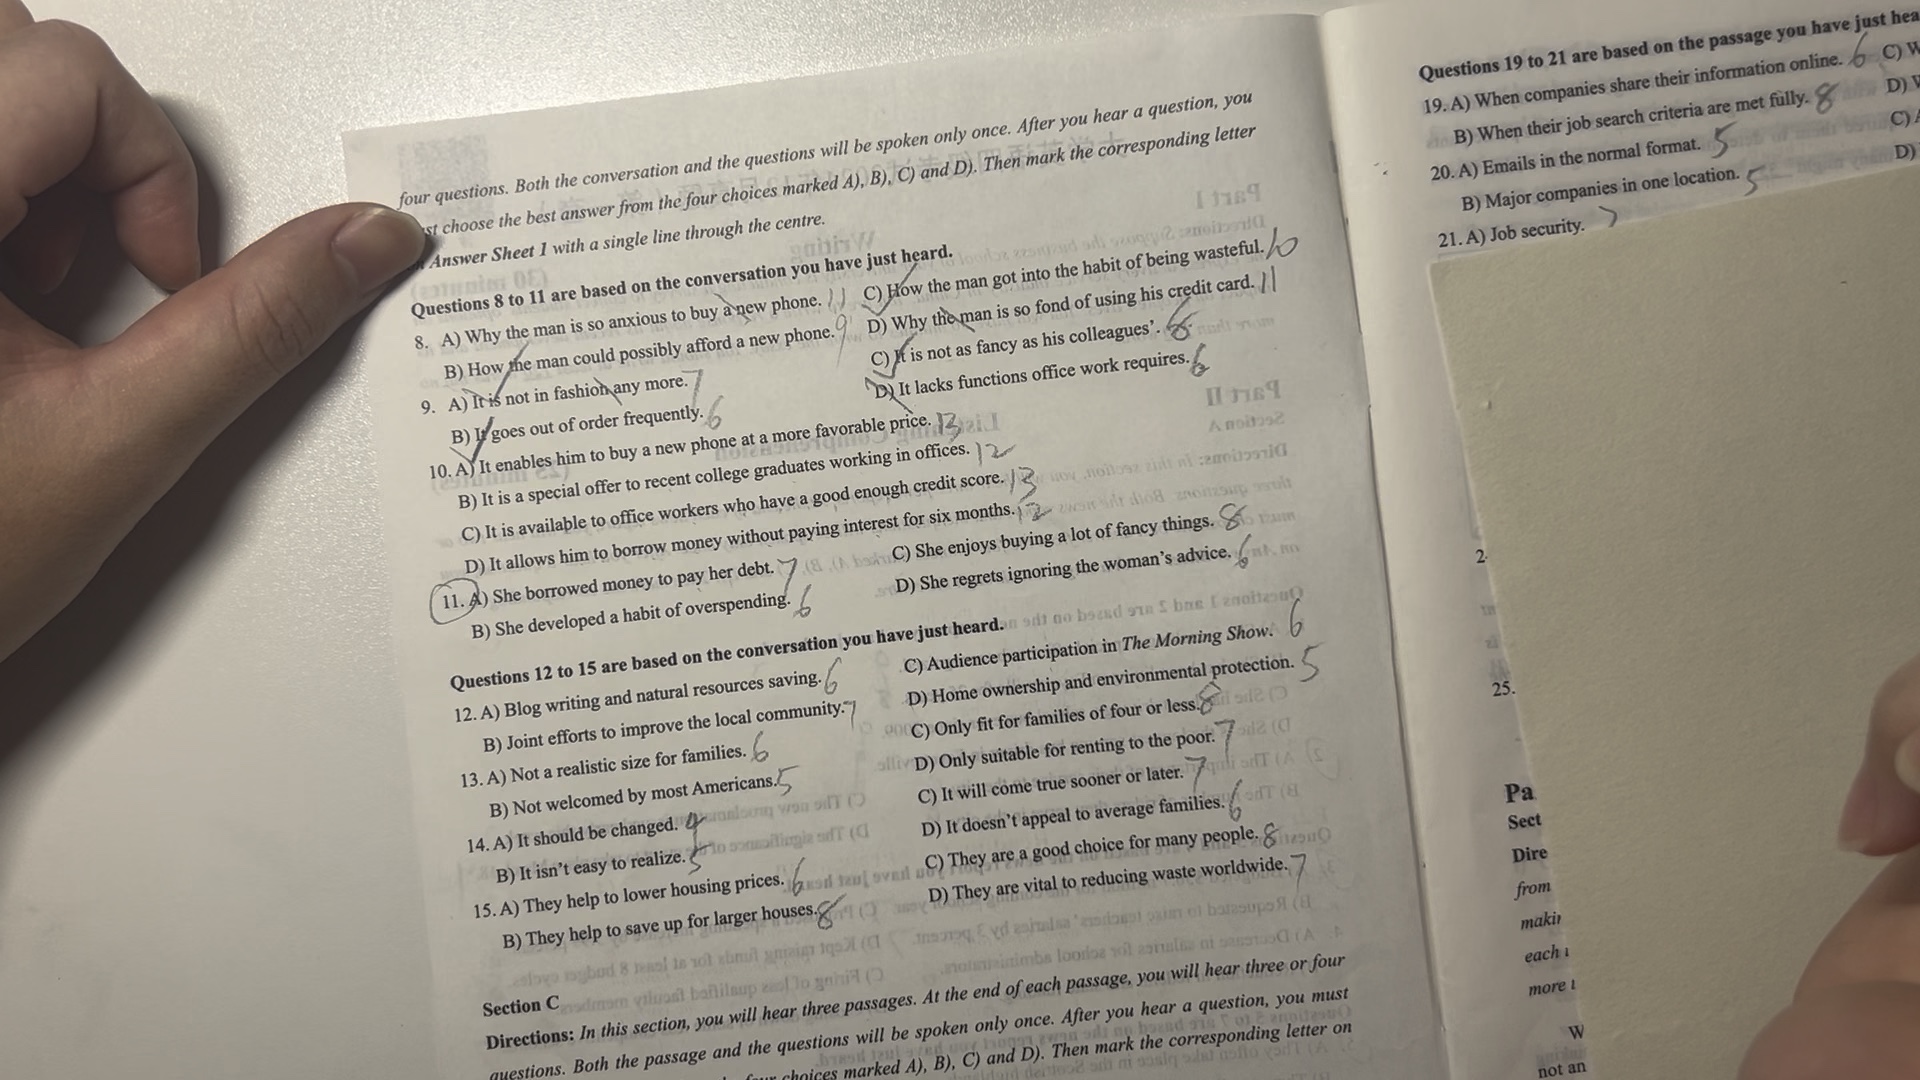 four questions. Both the conversation and the questions will be spoken only once. After you hear a question, you
st choose the best answer from the four choices marked A), B), C) and D). Then mark the corresponding letter
Answer Sheet 1 with a single line through the centre.
Questions 8 to 11 are based on the conversation you have just heard.
8. A) Why the man is so anxious to buy a new phone. 11 C) How the man got into the habit of being wasteful. 10
B) How the man could possibly afford a new phone. 9 D) Why the man is so fond of using his credit card. 11
9. A) It is not in fashion any more. 7 C) It is not as fancy as his colleagues'. 6
B) It goes out of order frequently. 6 D) It lacks functions office work requires. 6
10. A) It enables him to buy a new phone at a more favorable price. 13
B) It is a special offer to recent college graduates working in offices. 12
C) It is available to office workers who have a good enough credit score. 13
D) It allows him to borrow money without paying interest for six months. 12
11. A) She borrowed money to pay her debt. 7 C) She enjoys buying a lot of fancy things. 8
B) She developed a habit of overspending. 6 D) She regrets ignoring the woman's advice. 6
Questions 12 to 15 are based on the conversation you have just heard.
12. A) Blog writing and natural resources saving. 6 C) Audience participation in The Morning Show. 6
B) Joint efforts to improve the local community. 7 D) Home ownership and environmental protection. 5
13. A) Not a realistic size for families. 6 C) Only fit for families of four or less. 8
B) Not welcomed by most Americans. 5 D) Only suitable for renting to the poor. 7
14. A) It should be changed. 4 C) It will come true sooner or later. 7
B) It isn't easy to realize. 5 D) It doesn't appeal to average families. 6
15. A) They help to lower housing prices. 6 C) They are a good choice for many people. 8
B) They help to save up for larger houses. 8 D) They are vital to reducing waste worldwide. 7
Section C
Directions: In this section, you will hear three passages. At the end of each passage, you will hear three or four
questions. Both the passage and the questions will be spoken only once. After you hear a question, you must
four choices marked A), B), C) and D). Then mark the corresponding letter on
Questions 19 to 21 are based on the passage you have just hea
19. A) When companies share their information online. 6 C) W
B) When their job search criteria are met fully. 8 D)
20. A) Emails in the normal format. 5 C)
B) Major companies in one location. 5 D)
21. A) Job security. 7
2
25.
Pa
Sect
Dire
from
makin
each
more
W
not an